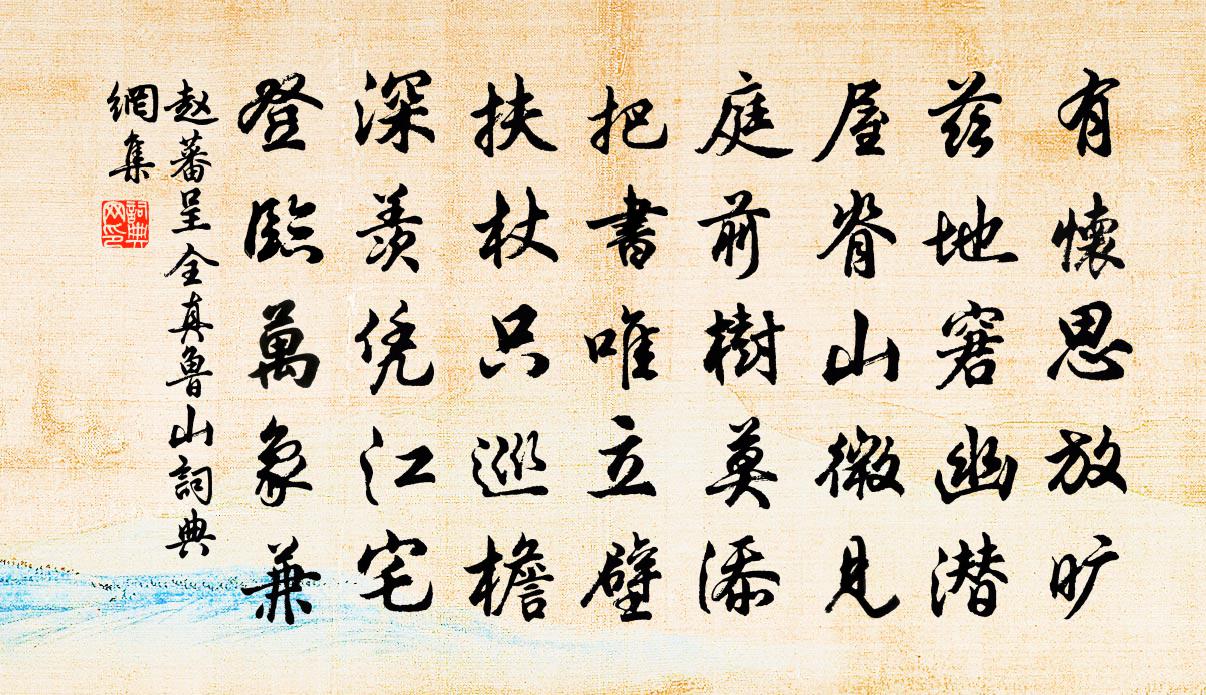 有懷思放旷
茲地窘幽潜
屋脊山微見
庭前樹莫添
把書唯立壁
扶杖只巡檐
深羨凭江宅
登臨萬象兼
赵蕃呈全真魯山詞典
網集
詞典
网印